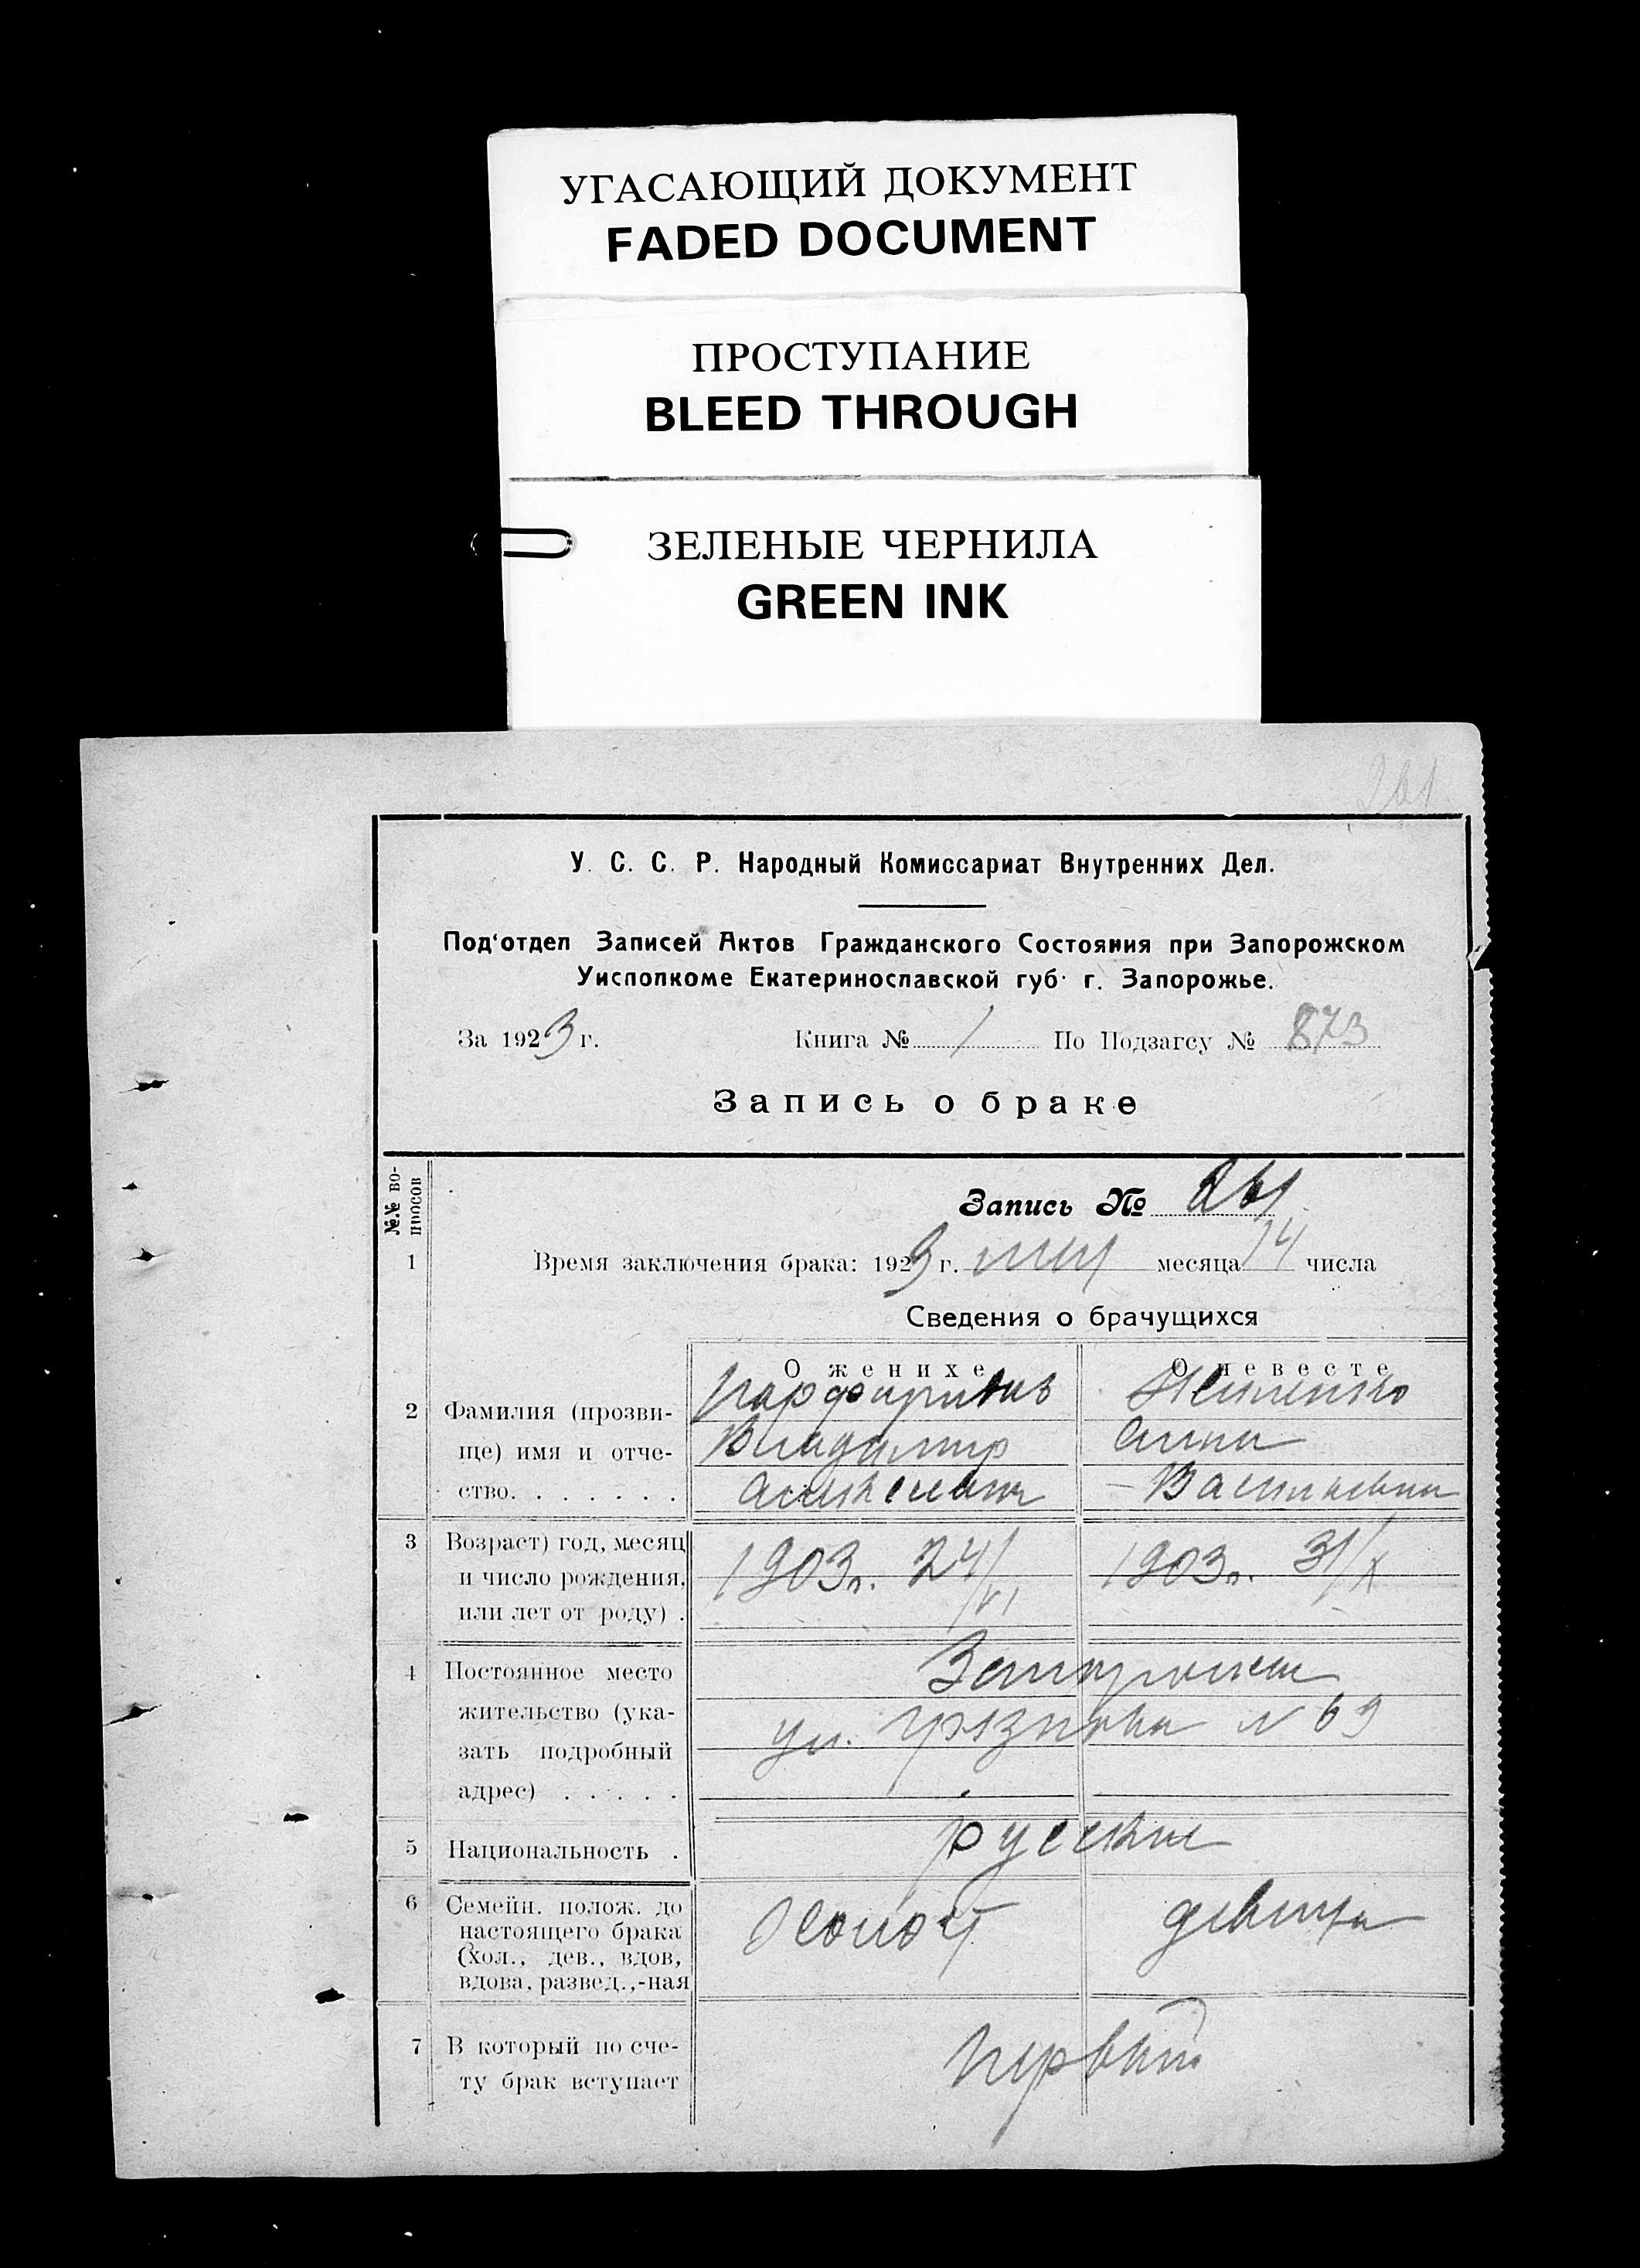 УГАСАЮЩИЙ ДОКУМЕНТ
FADED DOCUMENT
ПРОСТУПАНИЕ
BLEED THROUGH
ЗЕЛЕНЫЕ ЧЕРНИЛА
GREEN INK
261
У. С. С. Р. Народный Комиссариат Внутренних Дел.
Под‘отдел Записей Актов Гражданского Состояния при Запорожском
Уисполкоме Екатеринославской губ. г. Запорожье.
За 1923 г. Книга № 1 По Подзагсу № 873
Запись о браке
№№ во-
просов
Запись № 261
1 Время заключения брака: 1923 г. месяца 14 числа
Сведения о брачущихся
О женихе О невесте
2 Фамилия (прозви-
ще) имя и отче- Владимир Анна
ство. . . . . . . Алексеевич Васильевна
3 Возраст) год, месяц
и число рождения, 1903 г. 24/VI 1903 г. 31/X
или лет от роду) .
4 Постоянное место Запорожье
жительство (ука- ул. № 69
зать подробный
адрес) . . . . .
5 Национальность . русские
6 Семейн. полож. до холост девица
настоящего брака
(хол., дев., вдов,
вдова, развед.,-ная
7 В который по сче- первый
ту брак вступает